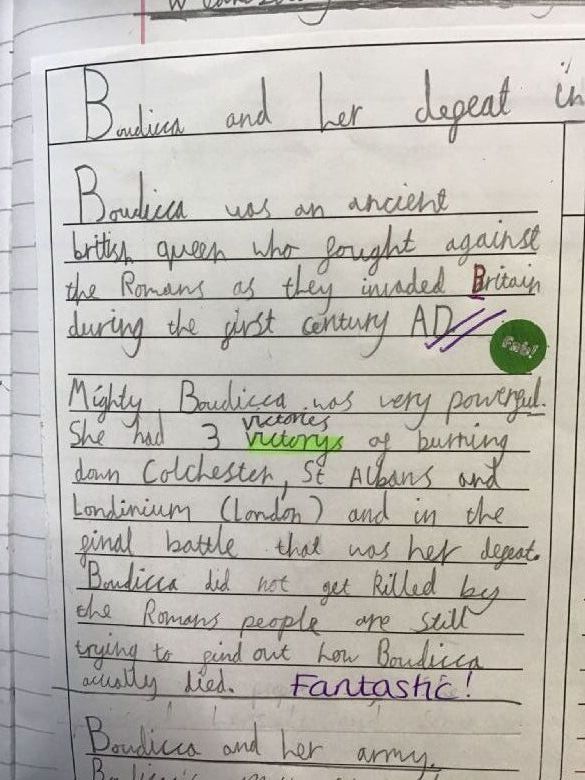 Boudicca and her defeat in
Boudicca was an ancient
british queen who fought against
the Romans as they invaded Britain
during the first century AD
Mighty Boudicca was very powerful.
victories
She had 3 victorys of burning
down Colchester, St Albans and
Londinium (London) and in the
final battle that was her defeat.
Boudicca did not get killed by
the Romans people are still
trying to find out how Boudicca
actually died. Fantastic!
Boudicca and her army.